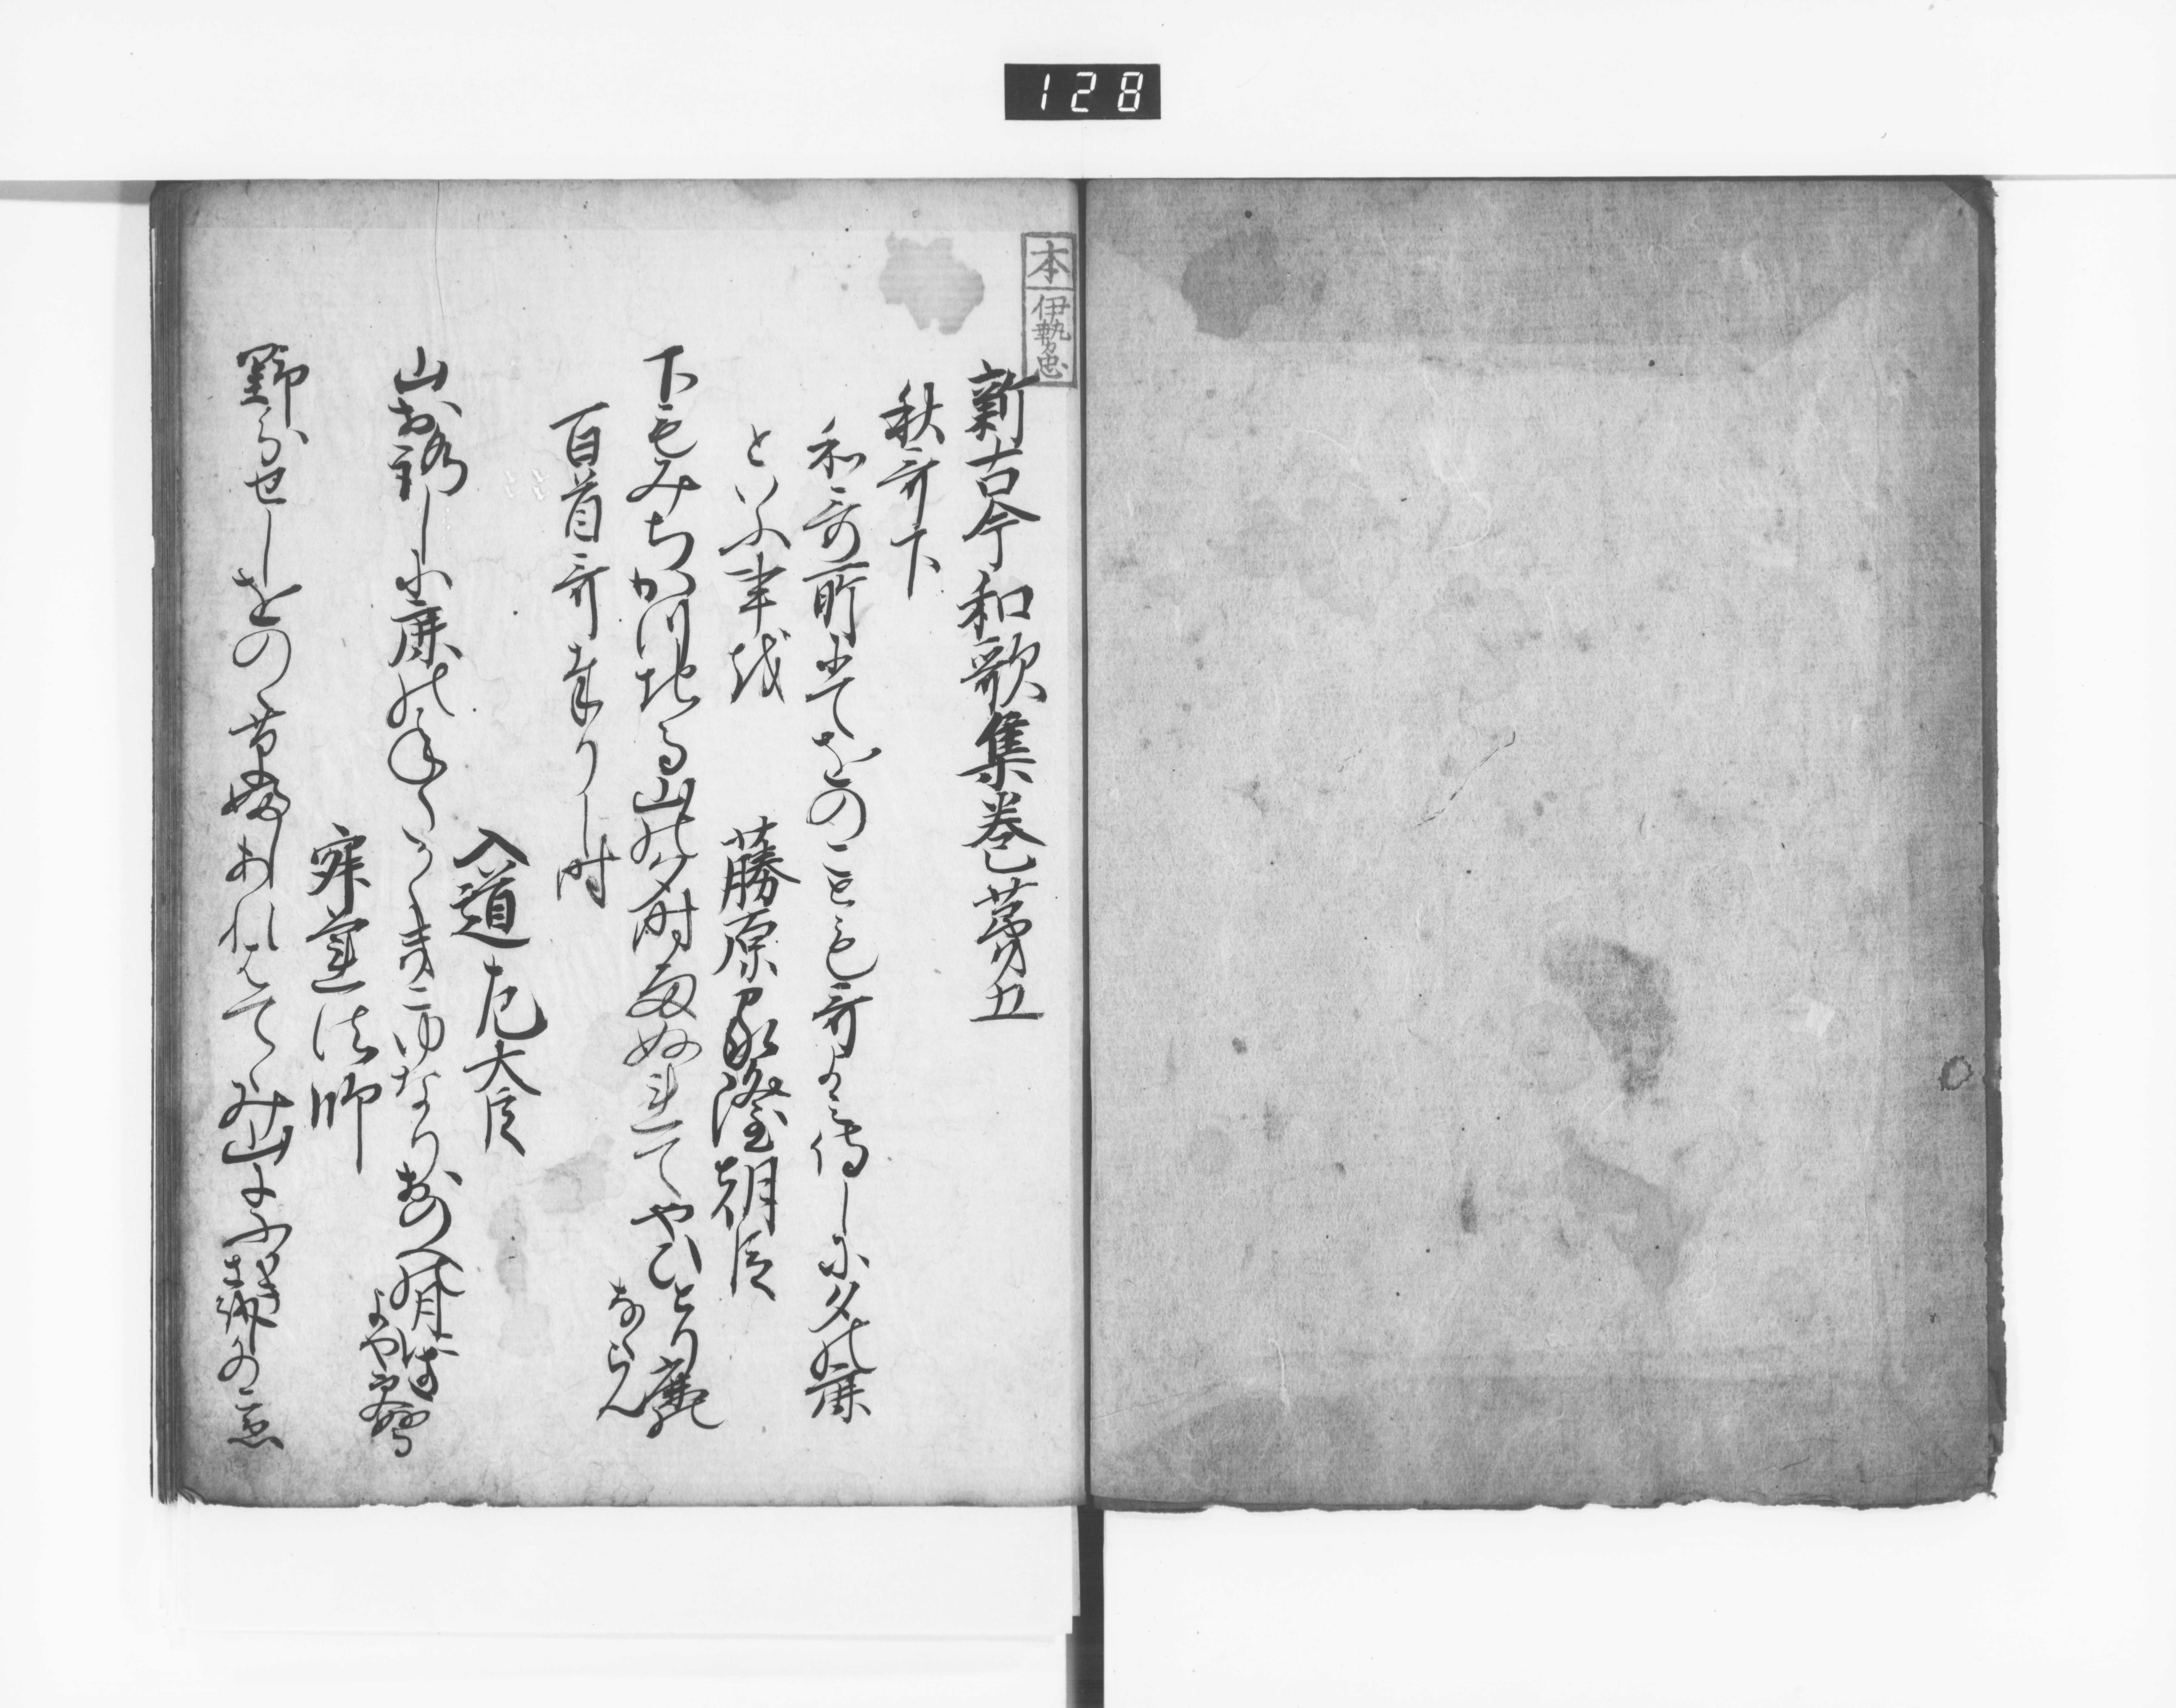 128
本
伊勢忠
新古今和歌集巻第五
秋哥下
和哥所にてをのことも哥よみ侍しに夕の鹿
といふ事を
藤原家隆朝臣
下もみちかつちる山の夕時雨ぬれてやひとり鹿の
なくらん
百首哥奉りし時
入道左大臣
山おろしに鹿のねたかくきこゆなりおのへの月にさ
よや更ぬる
寂蓮法師
野分せしをのゝ草ふしあれはてゝみ山にふかきさをしかの声